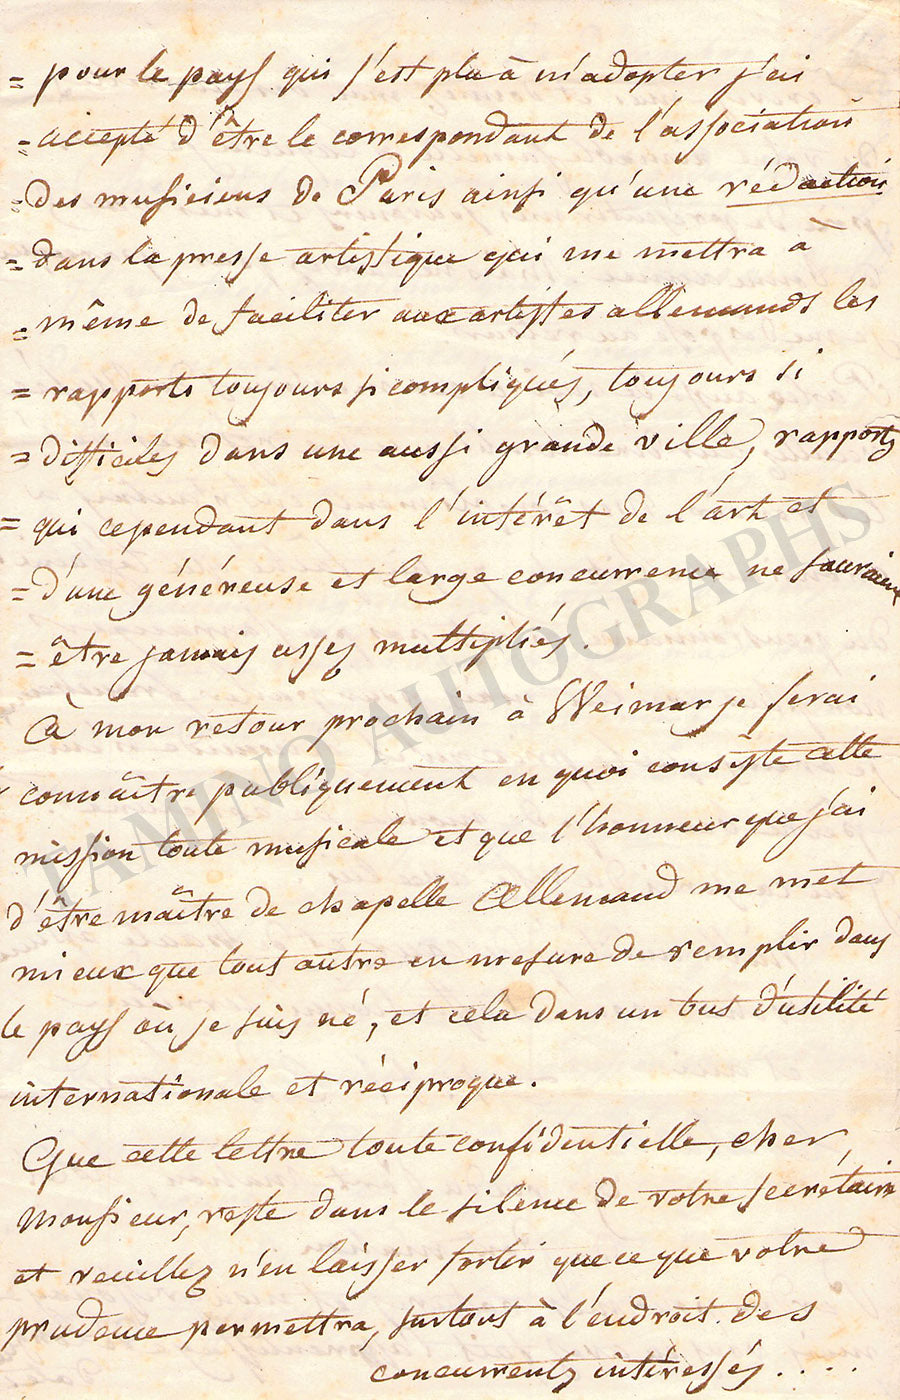 = pour le pays qui s'est plu à m'adopter j'ai
= accepté d'être le correspondant de l'association
= des musiciens de Paris ainsi qu'une rédaction
= dans la presse artistique qui me mettra à
= même de faciliter aux artistes allemands les
= rapports toujours si compliqués, toujours si
= difficiles dans une aussi grande ville, rapports
= qui cependant dans l'intérêt de l'art et
= d'une généreuse et large concurrence ne sauraient
= être jamais assez multipliés.
À mon retour prochain à Weimar je ferai
connaître publiquement en quoi consiste cette
mission toute musicale et que l'honneur que j'ai
d'être maître de chapelle Allemand me met
mieux que tout autre en mesure de remplir dans
le pays où je suis né, et cela dans un but d'utilité
internationale et réciproque.
Que cette lettre toute confidentielle, cher
Monsieur, reste dans le silence de votre secrétaire
et veuillez n'en laisser sortir que ce que votre
prudence permettra, surtout à l'endroit des
concurrents intéressés....
TAMINO AUTOGRAPHS